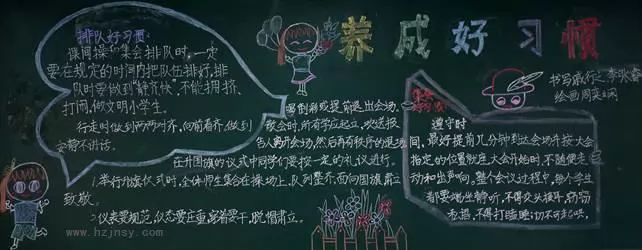 养成好习惯
排队好习惯:
课间操和集会排队时,一定
要在规定的时间内把队伍排好,排
队时要做到“静齐快”,不能拥挤、
打闹,做文明小学生。
行走时做到两两对齐,向前看齐,做到
安静不讲话。
喝倒彩或提前退出会场,
散会时,所有学应起立,欢送报
告人离开会场,然后再有秩序的退场
在升国旗的仪式中同学们要按一定的礼仪进行。
1.举行升旗仪式时,全体师生集合在操场上,队列整齐,面向国旗肃立
致敬。
2.仪表要规范,仪态要庄重,穿着要干,脱帽肃立。
书写:
绘画:周
遵守时
间,最好提前几分钟到达会场并按大会
指定的位置就座,大会开始时,不随便走
动和出声响。整个会议过程中,每个学生
都要端坐静听,不得交头接耳,
不得打瞌睡,切不可起哄,
www.hzjnsy.com